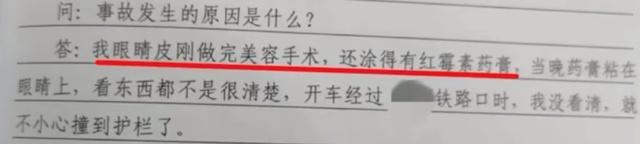 问：事故发生的原因是什么？
答：我眼睛皮刚做完美容手术，还涂得有红霉素药膏，当晚药膏粘在
眼睛上，看东西都不是很清楚，开车经过 铁路口时，我没看清，就
不小心撞到护栏了。